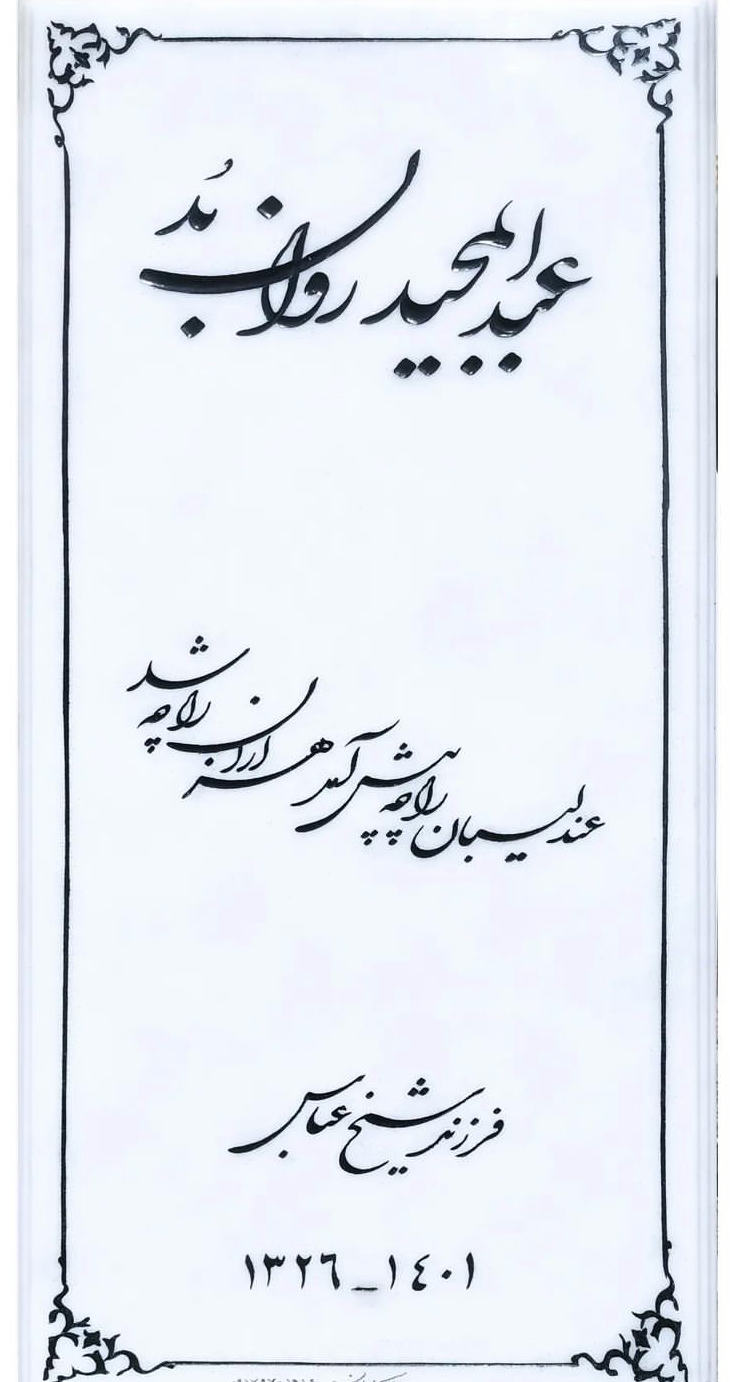 عبدالمجید روان بُد
عندلیبان را چه پیش آمد هزاران را چه شد
فرزند شیخ عباس
١٣٢٦_١٤٠١